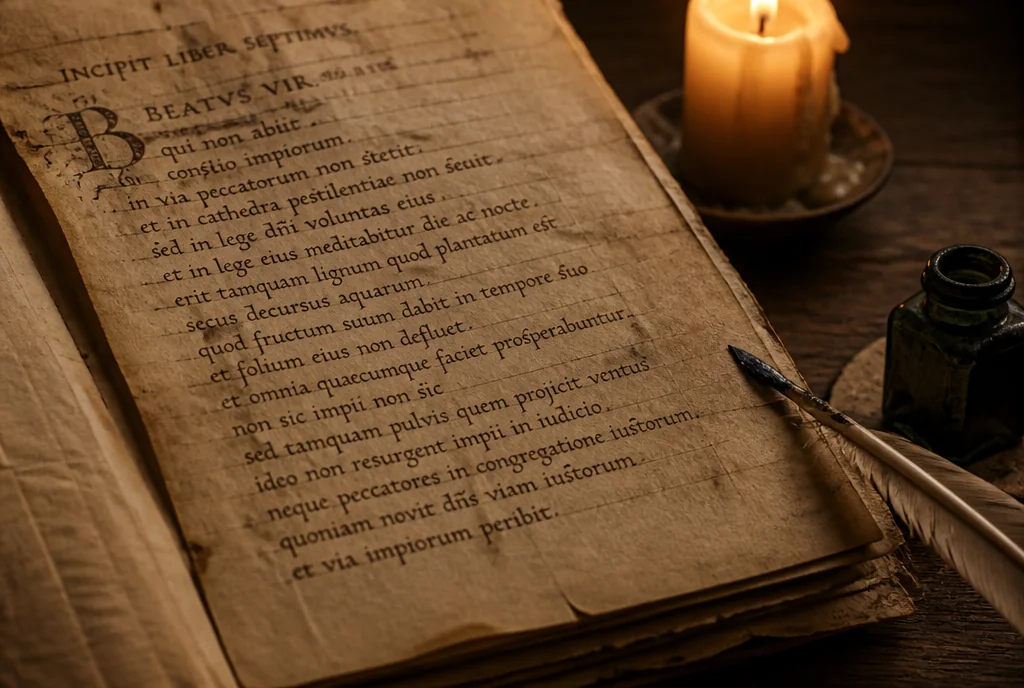 INCIPIT LIBER SEPTIMVS
B BEATVS VIR
qui non abiit
conſlio impiorum.
in via peccatorum non ſtetit.
et in cathedra peſtilentiae non ſeuit.
sed in lege dñi voluntas eius
et in lege eius meditabitur die ac nocte.
erit tamquam lignum quod plantatum eſt
secus decursus aquarum.
quod fructum suum dabit in tempore ſuo
et folium eius non defluet.
et omnia quaecumque faciet proſperabuntur.
non sic impii non ſic
sed tamquam pulvis quem projicit ventus
ideo non resurgent impii in iudicio.
neque peccatores in congregatione iuſtorum.
quoniam novit dñs viam iuſtorum.
et via impiorum peribit.